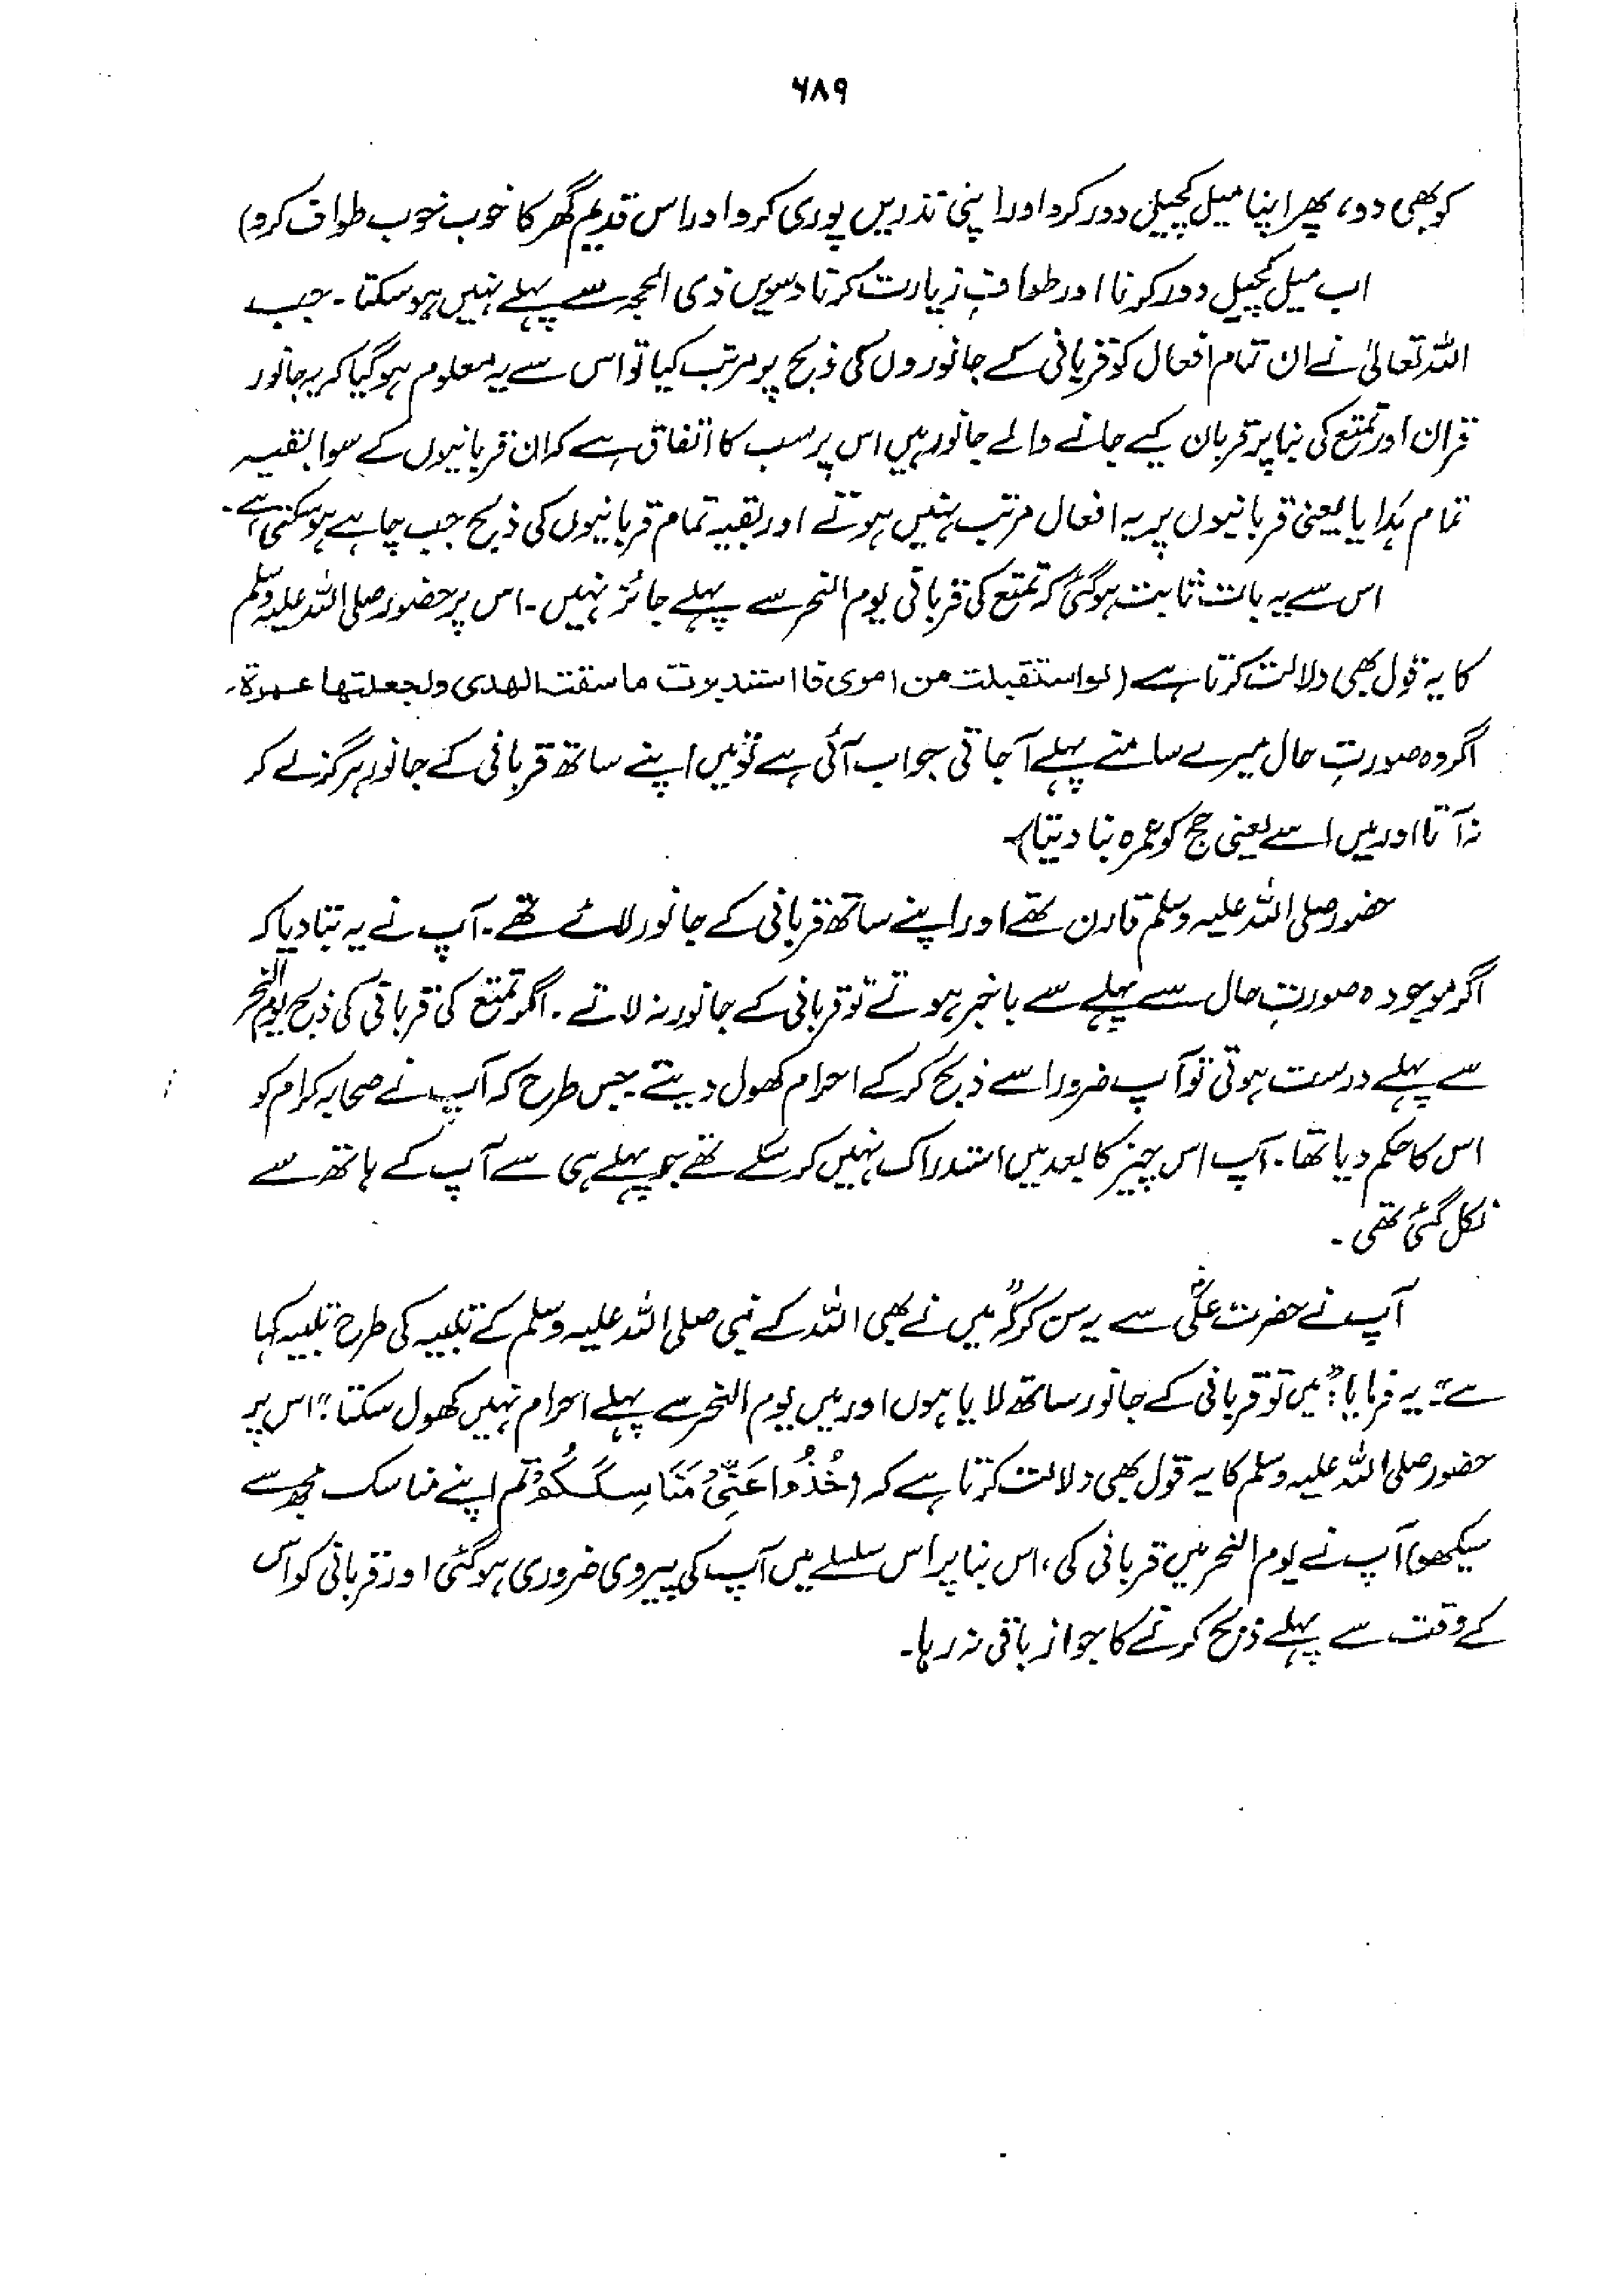 ۶۸۹
کو بھی دو، پھر اپنا میل کچیل دور کرو اور اپنی نذریں پوری کرو اور اس قدیم گھر کا خوب خوب طواف کرو)
اب میل کچیل دور کرنا اور طوافِ زیارت کرنا دسویں ذی الحجہ سے پہلے نہیں ہو سکتا۔ جب
اللہ تعالیٰ نے ان تمام افعال کو قربانی کے جانوروں کی ذبح پر مرتب کیا تو اس سے یہ معلوم ہو گیا کہ یہ جانور
قران اور تمتع کی بنا پر قربان کیے جانے والے جانور ہیں اس پر سب کا اتفاق ہے کہ ان قربانیوں کے سوا بقیہ
تمام ہدایا یعنی قربانیوں پر یہ افعال مرتب نہیں ہوتے اور بقیہ تمام قربانیوں کی ذبح جب چاہے ہو سکتی ہے۔
اس سے یہ بات ثابت ہو گئی کہ تمتع کی قربانی یوم النحر سے پہلے جائز نہیں۔ اس پر حضور صلی اللہ علیہ وسلم
کا یہ قول بھی دلالت کرتا ہے (لو استقبلت من امری ما استدبرت ما سقت الھدی ولجعلتھا عمرۃ،
اگر وہ صورتِ حال میرے سامنے پہلے آ جاتی جو اب آئی ہے تو میں اپنے ساتھ قربانی کے جانور ہرگز لے کر
نہ آتا اور میں اسے یعنی حج کو عمرہ بنا دیتا)۔
حضور صلی اللہ علیہ وسلم قارن تھے اور اپنے ساتھ قربانی کے جانور لائے تھے۔ آپ نے یہ بتا دیا کہ
اگر موجودہ صورتِ حال سے پہلے سے باخبر ہوتے تو قربانی کے جانور نہ لاتے۔ اگر تمتع کی قربانی کی ذبح یوم النحر
سے پہلے درست ہوتی تو آپ ضرور اسے ذبح کر کے احرام کھول دیتے جیس طرح کہ آپ نے صحابہ کرام کو
اس کا حکم دیا تھا۔ آپ اس چیز کا بعد میں استدراک نہیں کر سکے تھے جو پہلے ہی سے آپ کے ہاتھ سے
نکل گئی تھی۔
آپ نے حضرت علیؓ سے یہ سن کر کہ "میں نے بھی اللہ کے نبی صلی اللہ علیہ وسلم کے تلبیہ کی طرح تلبیہ کہا
ہے" یہ فرمایا: "میں تو قربانی کے جانور ساتھ لایا ہوں اور میں یوم النحر سے پہلے احرام نہیں کھول سکتا" اس پر
حضور صلی اللہ علیہ وسلم کا یہ قول بھی دلالت کرتا ہے کہ (خُذُوا عَنِّیْ مَنَاسِکَکُمْ تم اپنے مناسک مجھ سے
سیکھو) آپ نے یوم النحر میں قربانی کی، اس بنا پر اس سلسلے میں آپ کی پیروی ضروری ہو گئی اور قربانی کو اس
کے وقت سے پہلے ذبح کرنے کا جواز باقی نہ رہا۔